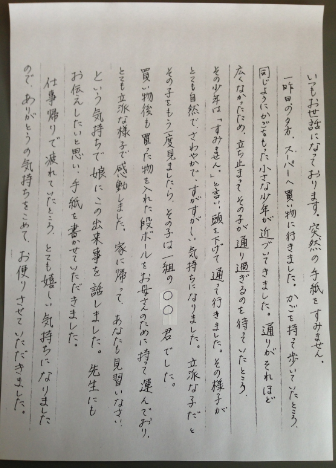 いつもお世話になっております。突然の手紙をすみません。
一昨日の夕方、スーパーへ買物に行きました。かごを持て歩いていたところ、
同じようにかごをもった小さな少年が近づいてきました。通りがそれほど
広くなかったため、立ち止まてその子が通り過ぎるのを待ていたところ、
その少年は「すみません」と言い、頭を下げて通て行きました。その様子が
とても自然で、さわやかで、すがすがしい気持ちになりました。立派な子だと
その子をもう一度見ましたら、その子は一組の○○君でした。
買い物後も買た物を入れた段ボールをお母さんのために持て運んでおり、
とても立派な様子で感動しました。家に帰って、あなたも見習いなさい、
という気持ちで娘にこの出来事を話しました。先生にも
お伝えしたいと思い、手紙を書かせていただきました。
仕事帰りで疲れていたところ、とても嬉しい気持ちになりました
ので、ありがとうの気持ちをこめて、お便りさせていただきました。